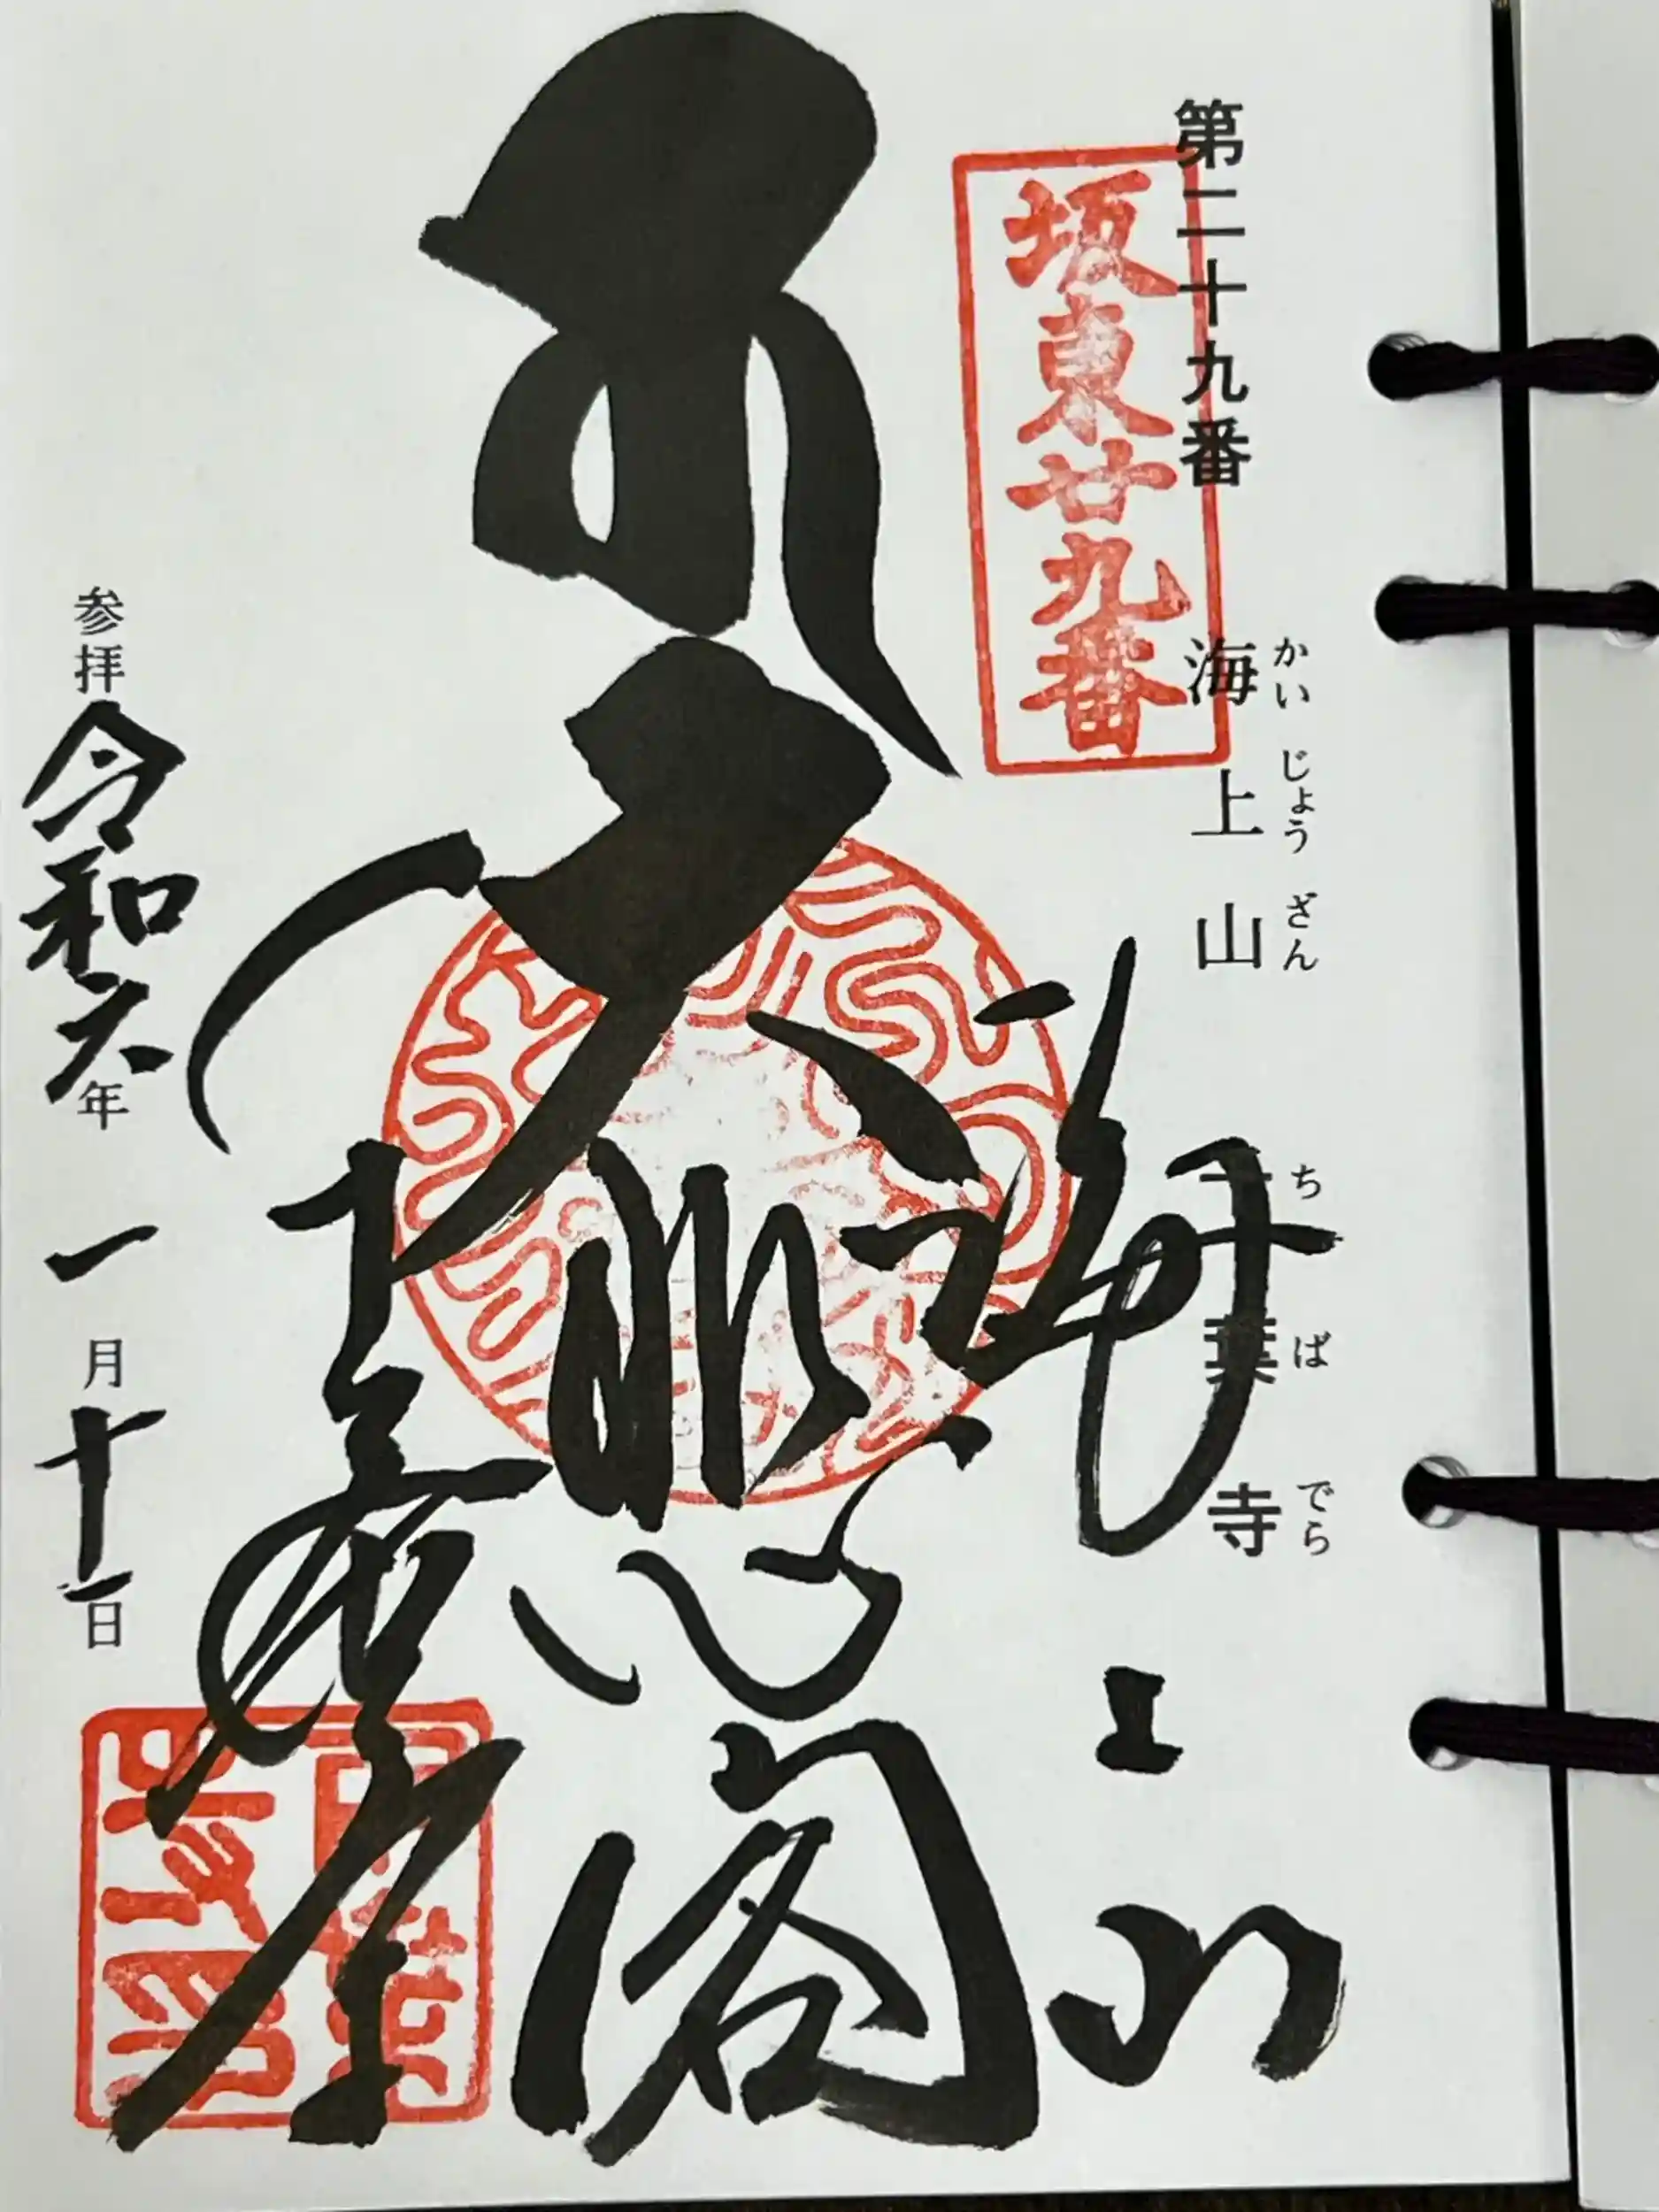 第二十九番
海上山 千葉寺
かいじょうざん ちばでら
坂東廿九番
海上山
大悲閣
千葉寺
参拝 令和六年 一月 十一日